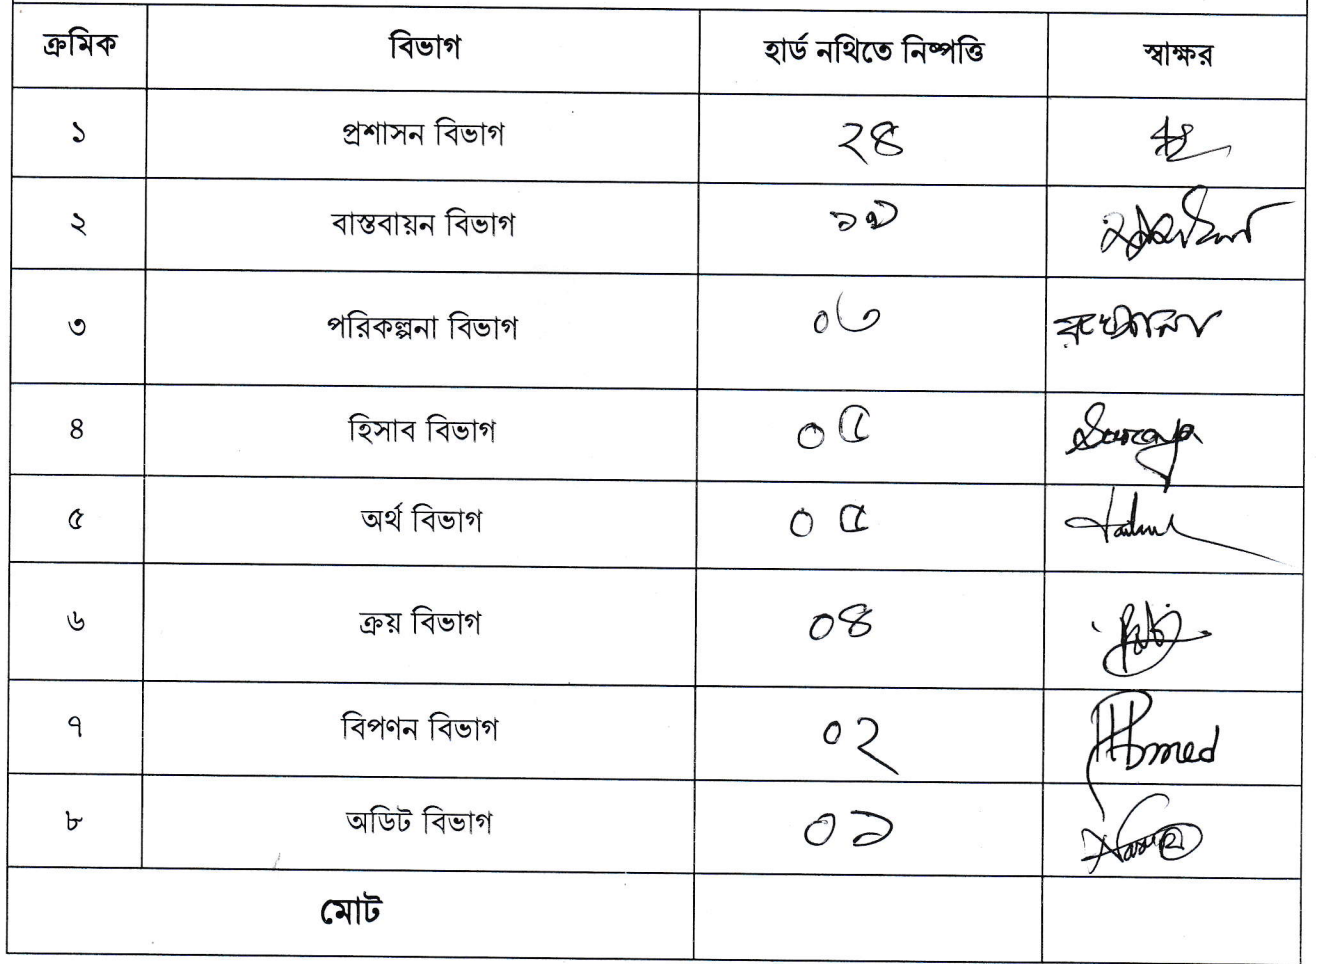 ক্রমিক বিভাগ হার্ড নথিতে নিষ্পত্তি স্বাক্ষর
১ প্রশাসন বিভাগ ২৪
২ বাস্তবায়ন বিভাগ
৩ পরিকল্পনা বিভাগ ০৬
৪ হিসাব বিভাগ ০৫ Suraya
৫ অর্থ বিভাগ ০৫
৬ ক্রয় বিভাগ ০৪
৭ বিপণন বিভাগ ০২ Ahmed
৮ অডিট বিভাগ ০১
মোট